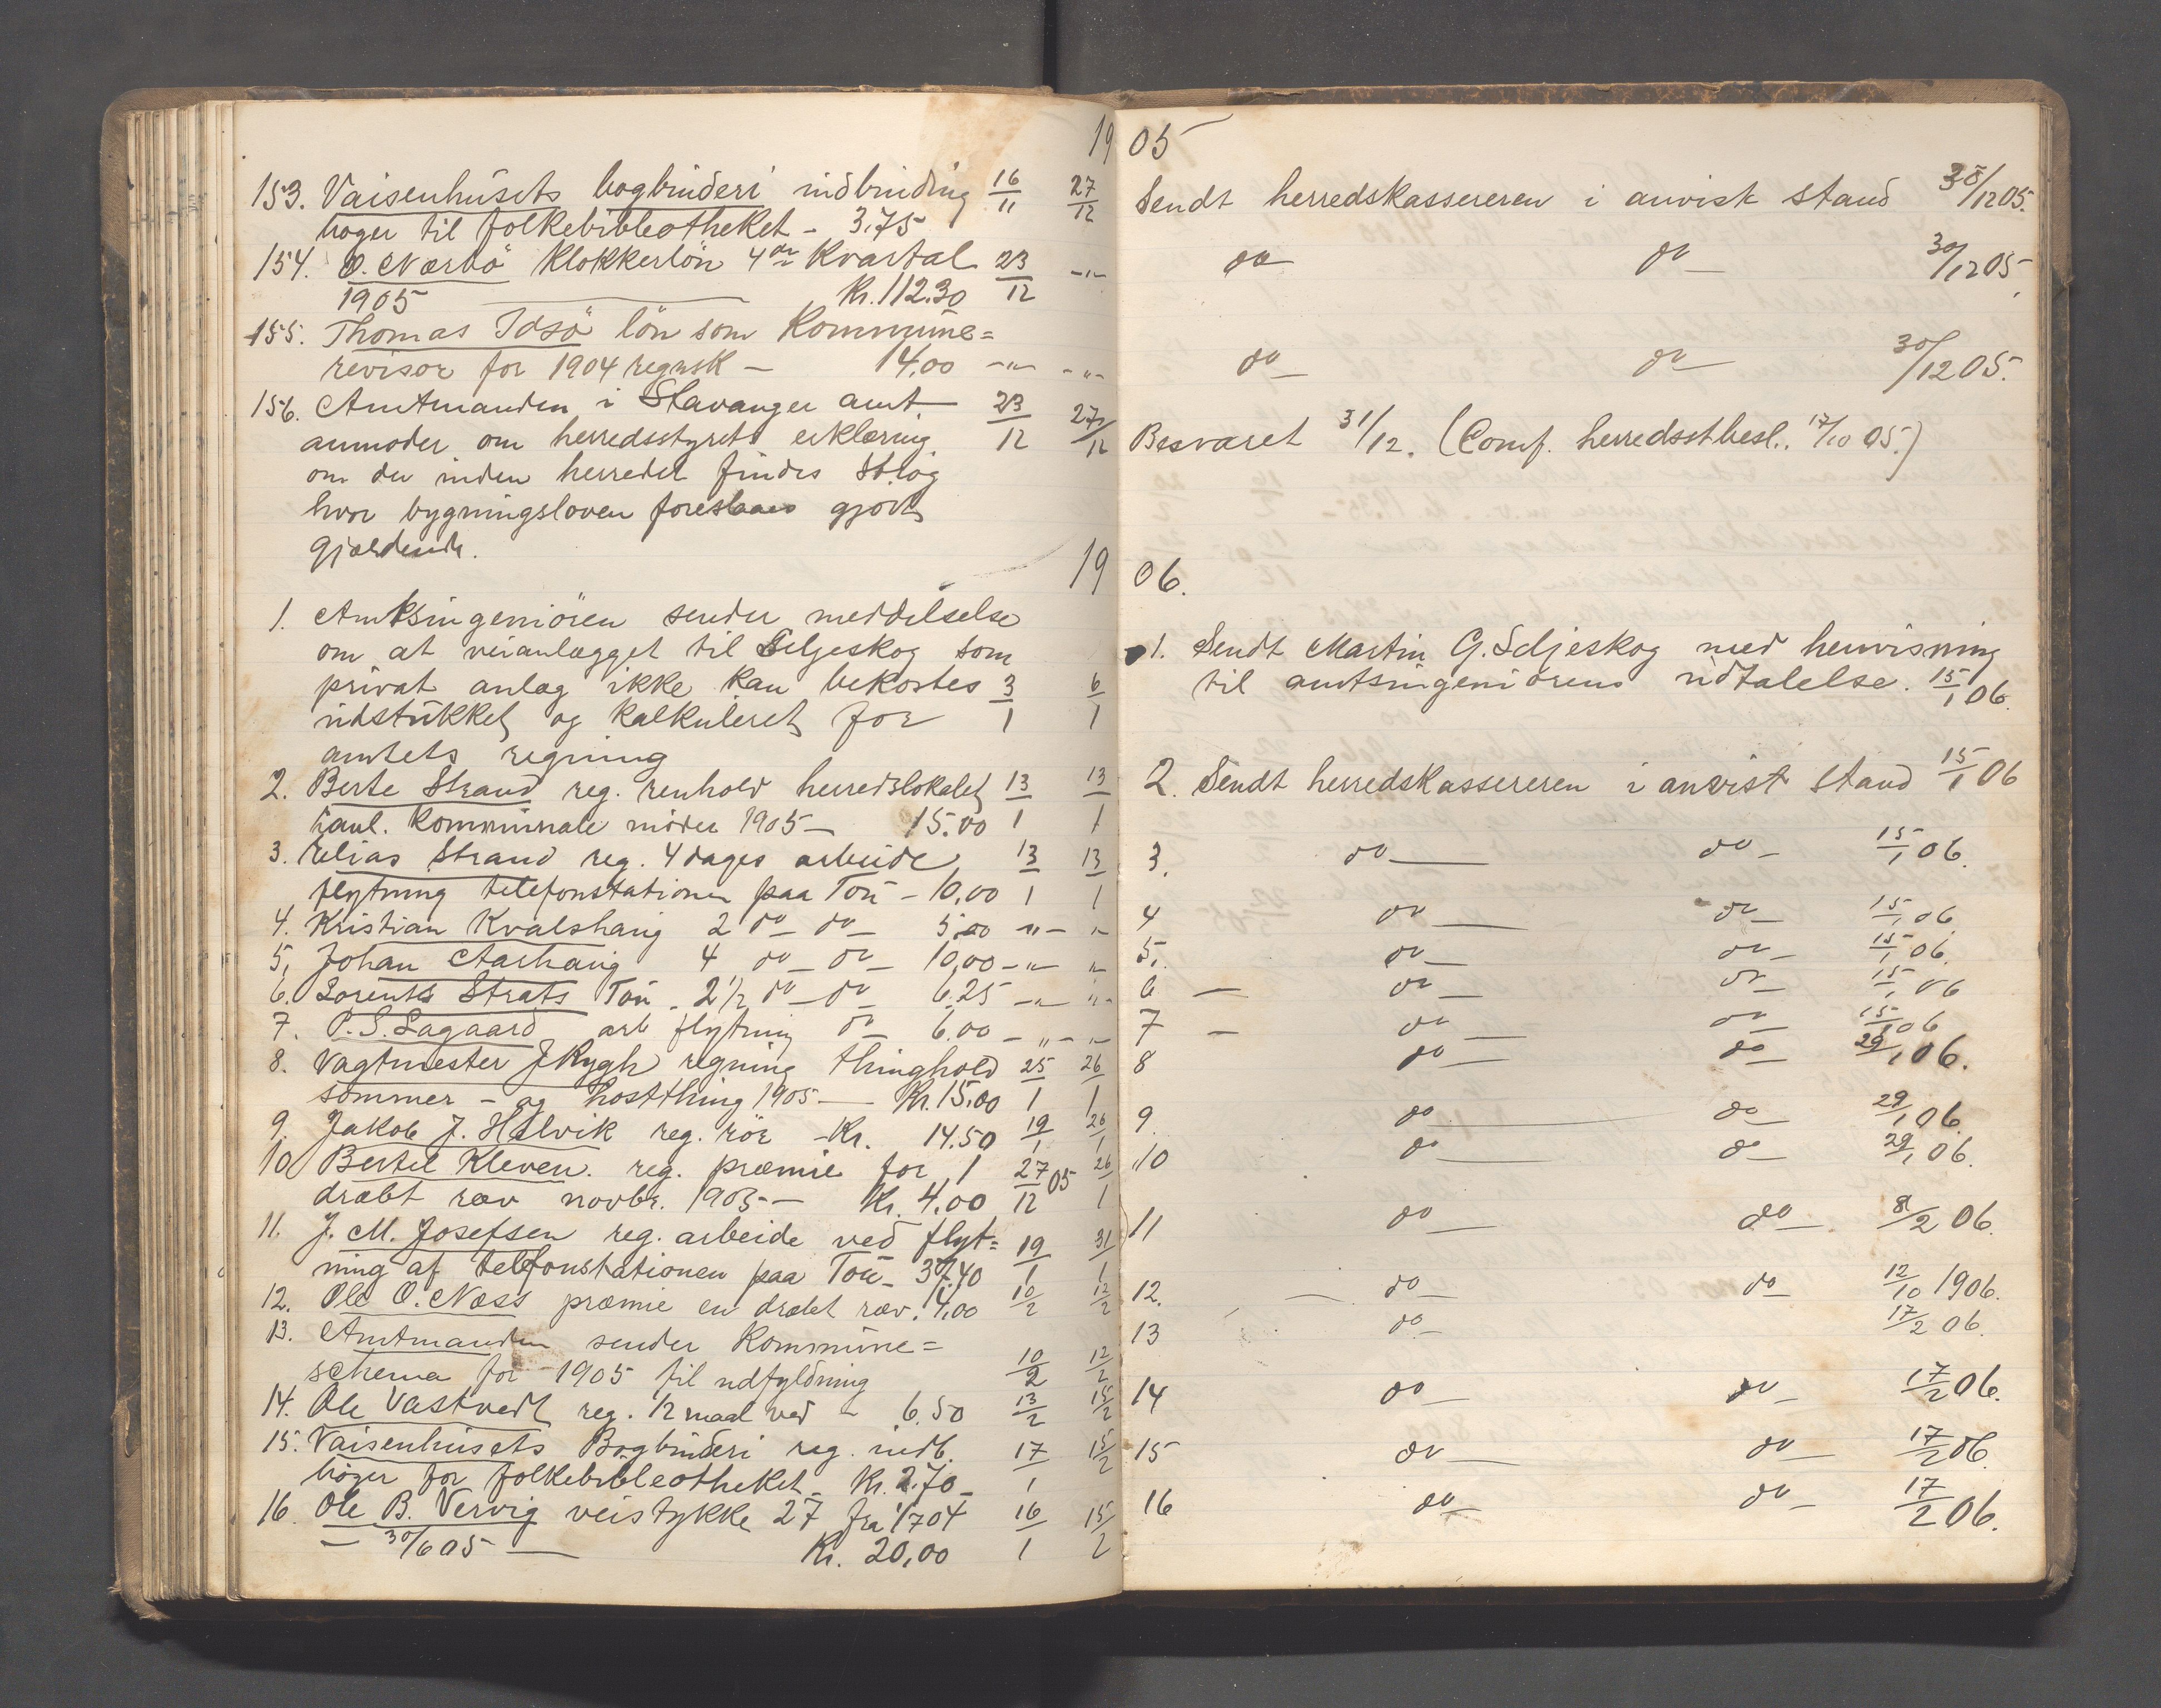 1905
153. Vaisenhusets bogbinderi indbinding 16/11 27/12
bøger til folkebibleotheket - 3,75
154. O. Nærbö Klokkerlön 4de Kvartal 23/12 -"-
1905 Kr. 112.30
155. Thomas Idsö lön som Kommune=
revisor for 1904 regnsk - 14,00 -"- -"-
156. Amtmanden i Stavanger amt 23/12 27/12
anmoder om herredsstyrets erklæring
om der inden herredet findes strög
hvor bygningsloven foreslaaes gjort
gjældende.
1906.
1. Amtsingeniören sender meddelelse
om at veianlægget til Seljeskog som
privat anlæg ikke kan bekostes 3/1 6/1
udstukket og kalkuleret for
amtets regning
2. Berte Strand reg. renhold herredslokalet 13/1 13/1
hanl. kommunale möder 1905 - 15.00
3. Elias Strand reg. 4 dages arbeide 13/1 13/1
flytning telefonstationen paa Tou - 10,00
4. Kristian Kvalshaug 2 do - do - 5,00 -"- "-
5. Johan Aarhaug 4 do - do - 10,00 -"- "
6. Lorents Strats Tou - 2 1/2 do - do - 6,25 -"- "-
7. P. S. Lagaard arb flytning do - 6.00 -"- "-
8. Vagtmester J Rygh regning thinghold 25/1 26/1
sommer- og hostthing 1905 - Kr. 15,00
9. Jakob J. Helvik reg. rör - Kr. 14.50 19/1 26/1
10 Bertel Kleven. reg. præmie for 1 27/12 05 26/1
dræbt ræv novbr. 1905 - Kr. 4,00
11. J. M. Josefsen reg. arbeide ved flyt= 19/1 31/1
ning af telefonstationen paa Tou - 37,40
12. Ole O. Næss præmie en dræbt ræv. 4,00 10/2 12/2
13. Amtmanden sender Kommune=
schema for 1905 til udfyldning 10/2 12/2
14. Ole Vastvedt reg. 1/2 maal ved - 6.50 13/2 15/2
15. Vaisenhusets Bogbinderi reg. indb. 17/1 15/2
bøger for folkebibleotheket - Kr. 2.70 -
16. Ole B. Vervig veistykke 27 fra 1/7 04 16/1 15/2
- 30/6 05 - Kr. 20,00
Sendt herredskassereren i anvist stand 30/12 05.
do do - 30/12 05
do - do - 30/12 05.
Besvaret 31/12. (Comf. herredsstbesl.. 17/10 05.)
1. Sendt Martin G. Seljeskog med henvisning
til amtsingeniörens udtalelse. 15/1 06.
2. Sendt herredskassereren i anvist stand 15/1 06
3. do - do - 15/1 06.
4 do - do - 15/1 06.
5. do - do - 15/1 06.
6 - do - do - 15/1 06
7 - do - do - 15/1 06
8 do - do - 29/1 06.
9. do - do - 29/1 06.
10 do - do - 29/1 06.
11 do - do - 8/2 06.
12. do - do - 12/10 1906.
13 do - 17/2 06.
14 do - do - 17/2 06.
15 do - do - 17/2 06.
16 do - do - 17/2 06.